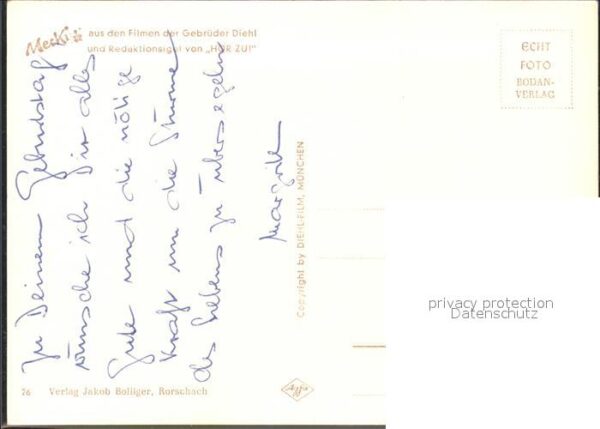 Mecki
aus den Filmen der Gebrüder Diehl
und Redaktionsigel von „HÖR ZU!"
ECHT
FOTO
BODAN-
VERLAG
Zu Deinem Geburtstag
wünsche ich Dir alles
Gute und die nötige
Kraft um die Stürme
des Lebens zu übersegeln
Margrith
Copyright by DIEHL-FILM, MÜNCHEN
privacy protection
Datenschutz
76 Verlag Jakob Bolliger, Rorschach
Agfa